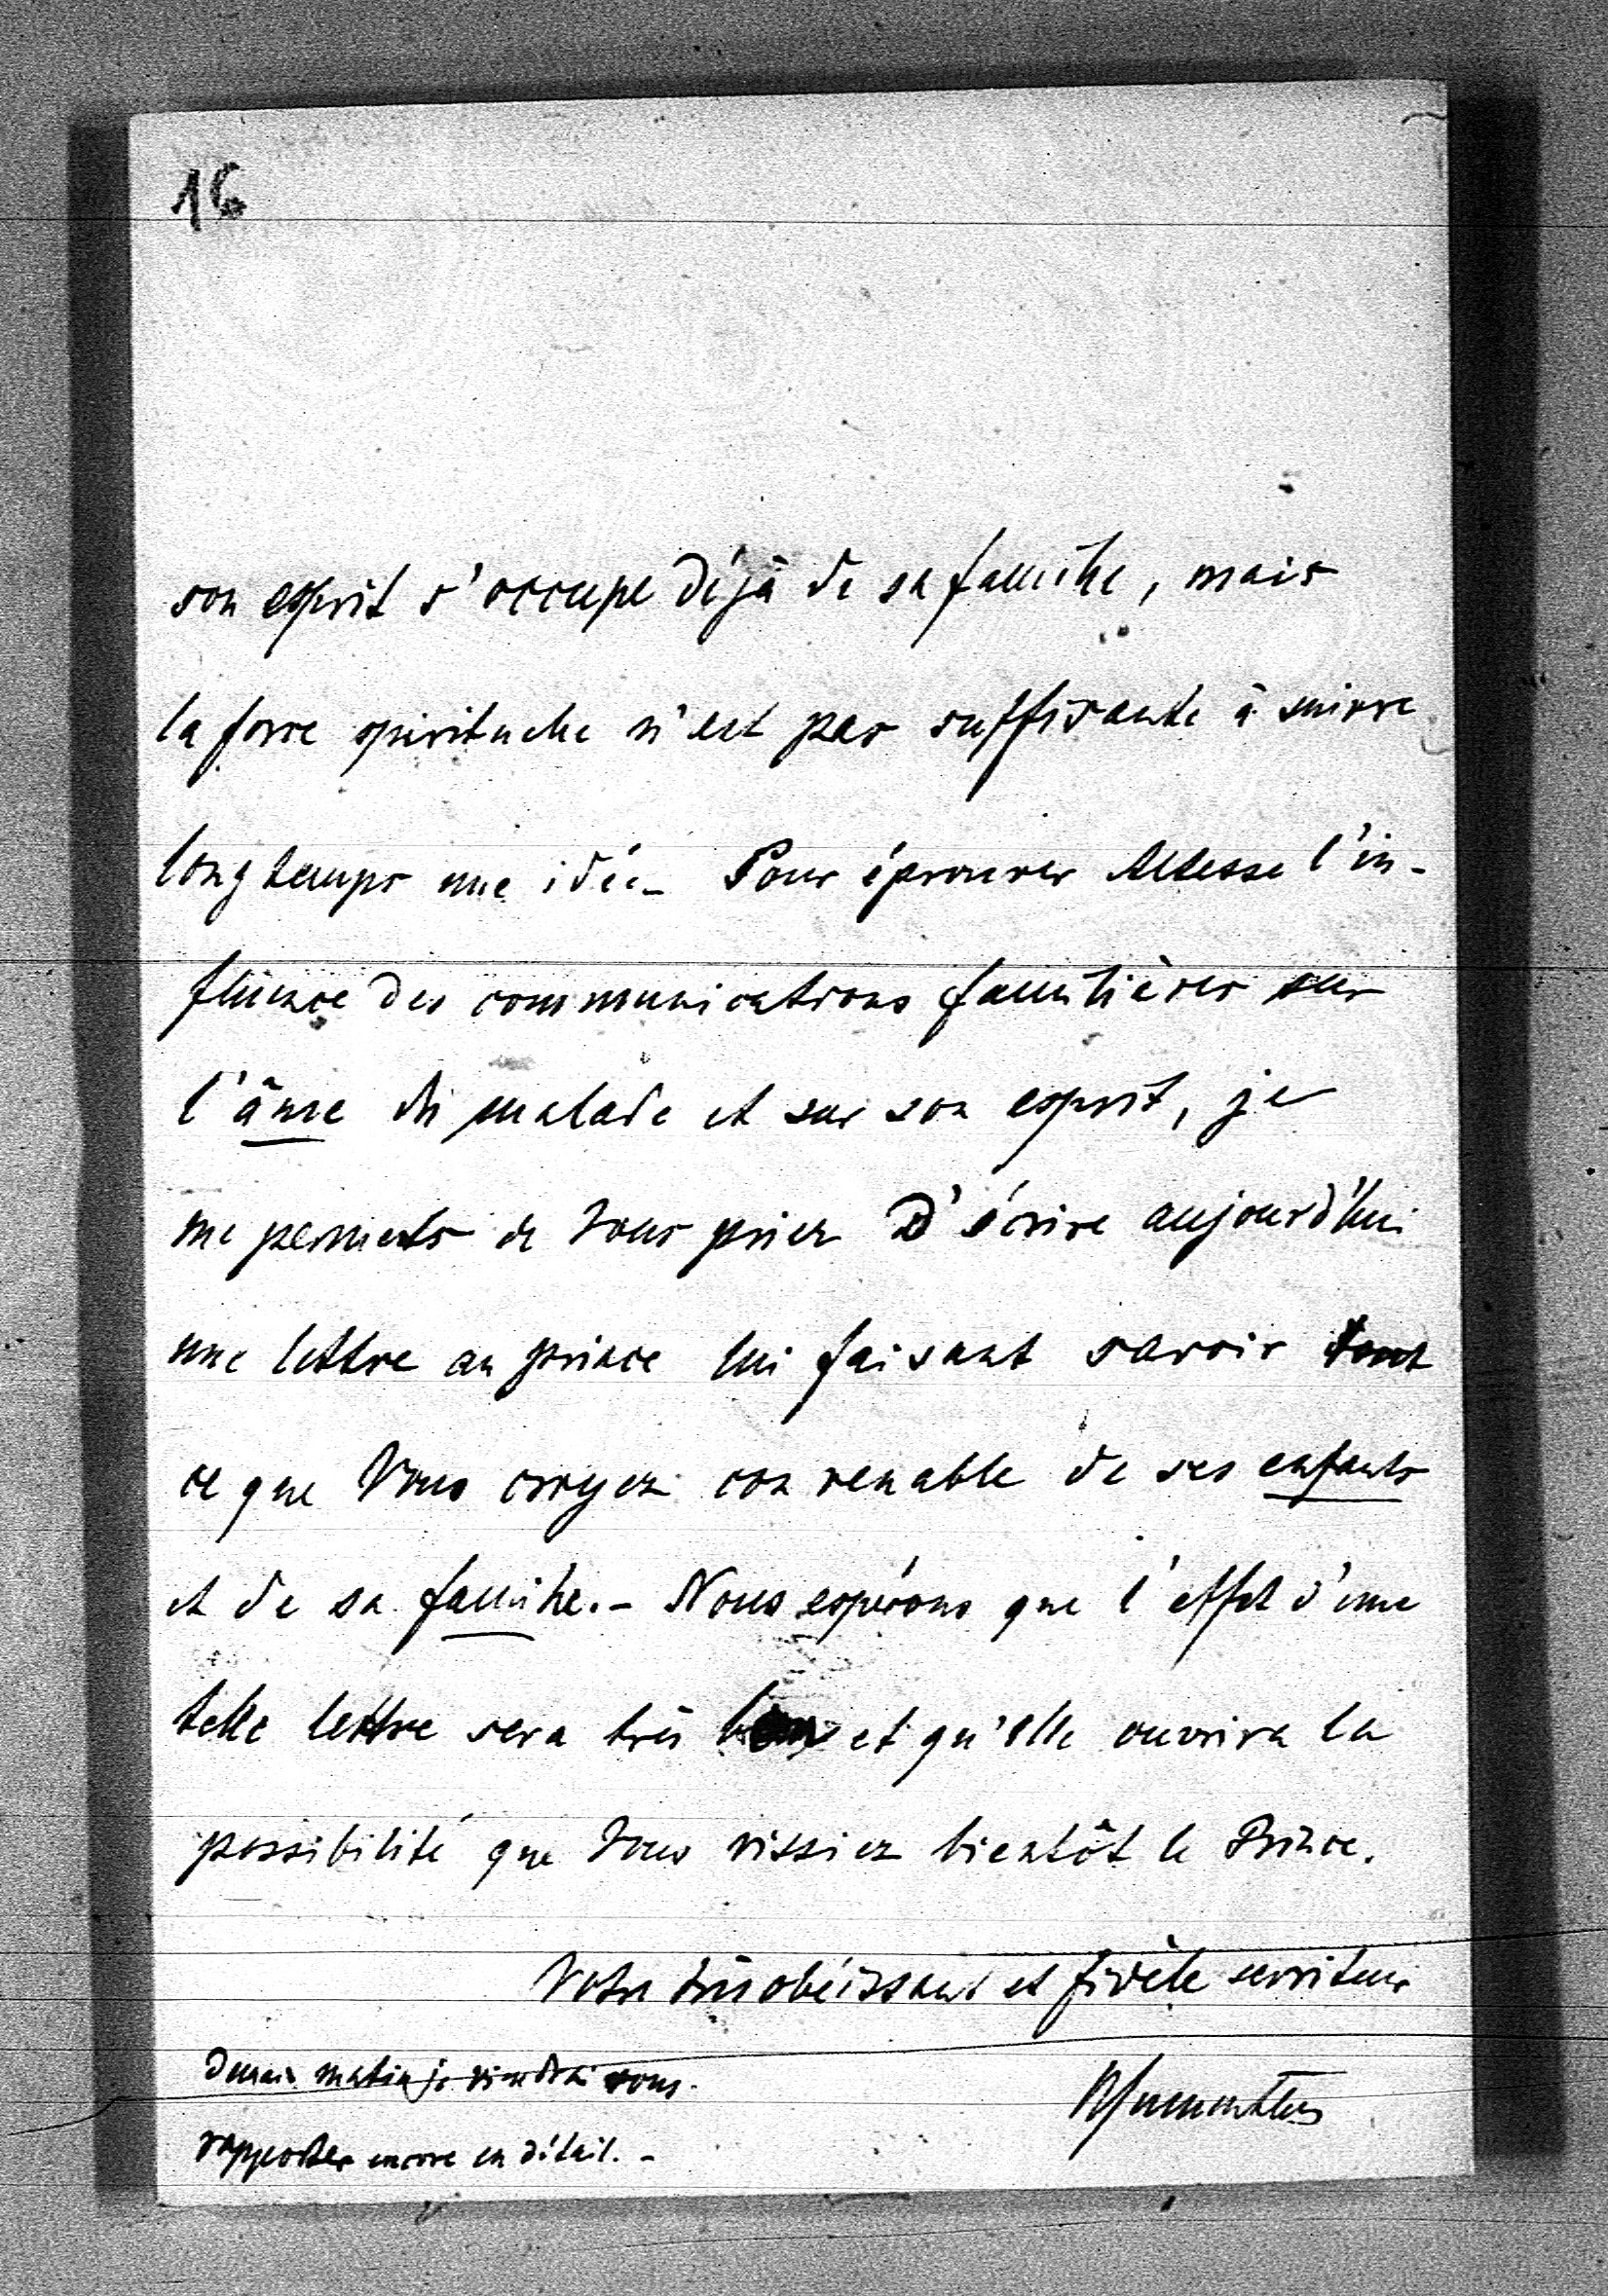 16
son esprit s'occupe déjà de sa famille, mais
la force spirituelle n'est pas suffisante à suivre
longtemps une idée_ Pour éprouver Altesse l'in-
fluence des communications familières sur
l'âme du malade et sur son esprit, je
me permets de Vous prier d'écrire aujourd'hui
une lettre au prince lui faisant savoir tout
ce que Vous croyez convenable de ses enfants
et de sa famille.- Nous espérons que l'effet d'une
telle lettre sera très bon et qu'elle ouvrira la
possibilité que Vous vissiez bientôt le Prince.
Votre très obéissant et fidèle serviteur
Demain matin je viendrai vous
rapporter encore en détail. -